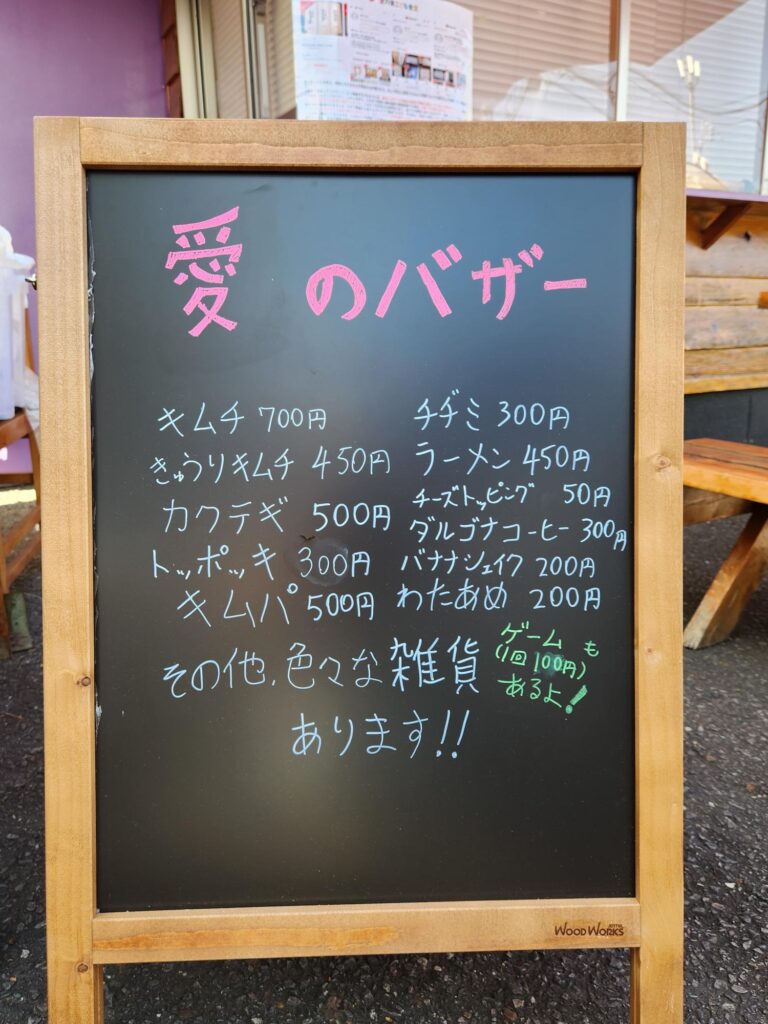 愛のバザー
キムチ 700円
きゅうりキムチ 450円
カクテギ 500円
トッポッキ 300円
キムパ 500円
チヂミ 300円
ラーメン 450円
チーズトッピング 50円
ダルゴナコーヒー 300円
バナナシェイク 200円
わたあめ 200円
その他、色々な雑貨
あります!!
ゲームも
(1回100円)
あるよ!
WOOD WORKS